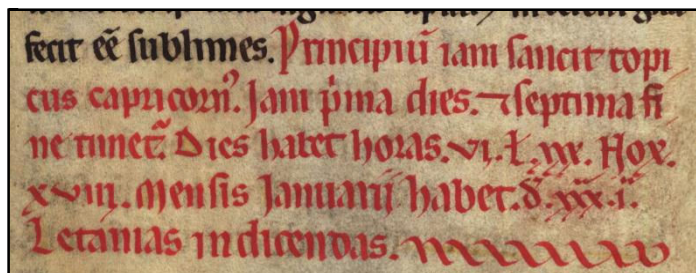 fecit eē sublimes. Principiū iam sancit tropi
cus capricorn᷒. Jam p̾ima dies. ⁊ septima fi
ne timet᷑. Dies habet horas. vi. ł. xx. Nox.
xviii. Mensis Januarij habet. d̄. xxx. i.
Letanias in dicendas.